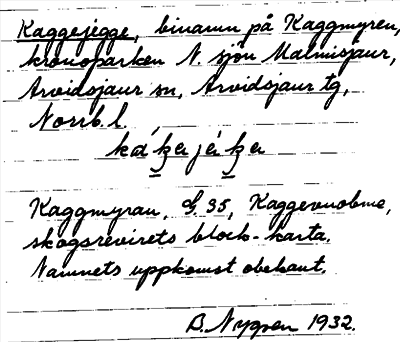 Kaggejegge, binamn på Kaggmyren,
kronoparken N. sjön Malmisjaur,
Arvidsjaur sn, Arvidsjaur tg,
Norrb. l.
Kaggmyran, G. 35, Kaggevuobme,
skogsrevirets block-karta.
Namnets uppkomst obekant.
B. Nygren 1932.